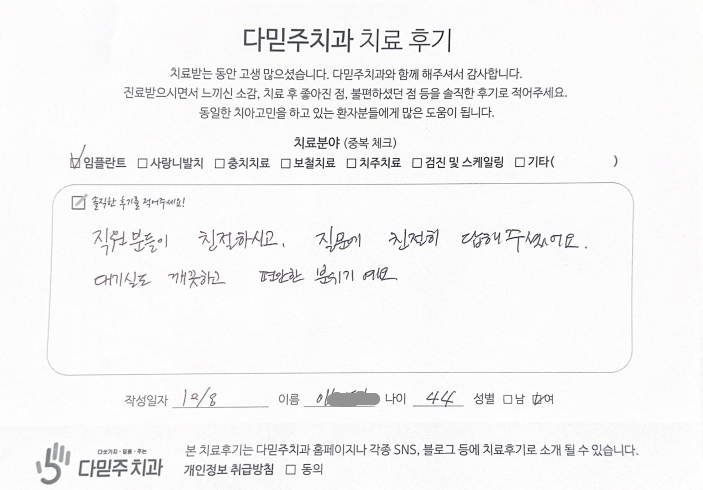 다믿주치과 치료 후기
치료받는 동안 고생 많으셨습니다. 다믿주치과와 함께 해주셔서 감사합니다.
진료받으시면서 느끼신 소감, 치료 후 좋아진 점, 불편하셨던 점 등을 솔직한 후기로 적어주세요.
동일한 치아고민을 하고 있는 환자분들에게 많은 도움이 됩니다.
치료분야 (중복 체크)
☑임플란트 □사랑니발치 □충치치료 □보철치료 □치주치료 □검진 및 스케일링 □기타( )
솔직한 후기를 적어주세요!
직원분들이 친절하시고, 질문에 친절히 답해주셨어요.
대기실도 깨끗하고 편안한 분위기예요
작성일자 12/8 이름 이 나이 44 성별 □남 ☑여
다섯가지·믿음·주는
다믿주치과
본 치료후기는 다믿주치과 홈페이지나 각종 SNS, 블로그 등에 치료후기로 소개 될 수 있습니다.
개인정보 취급방침 □ 동의